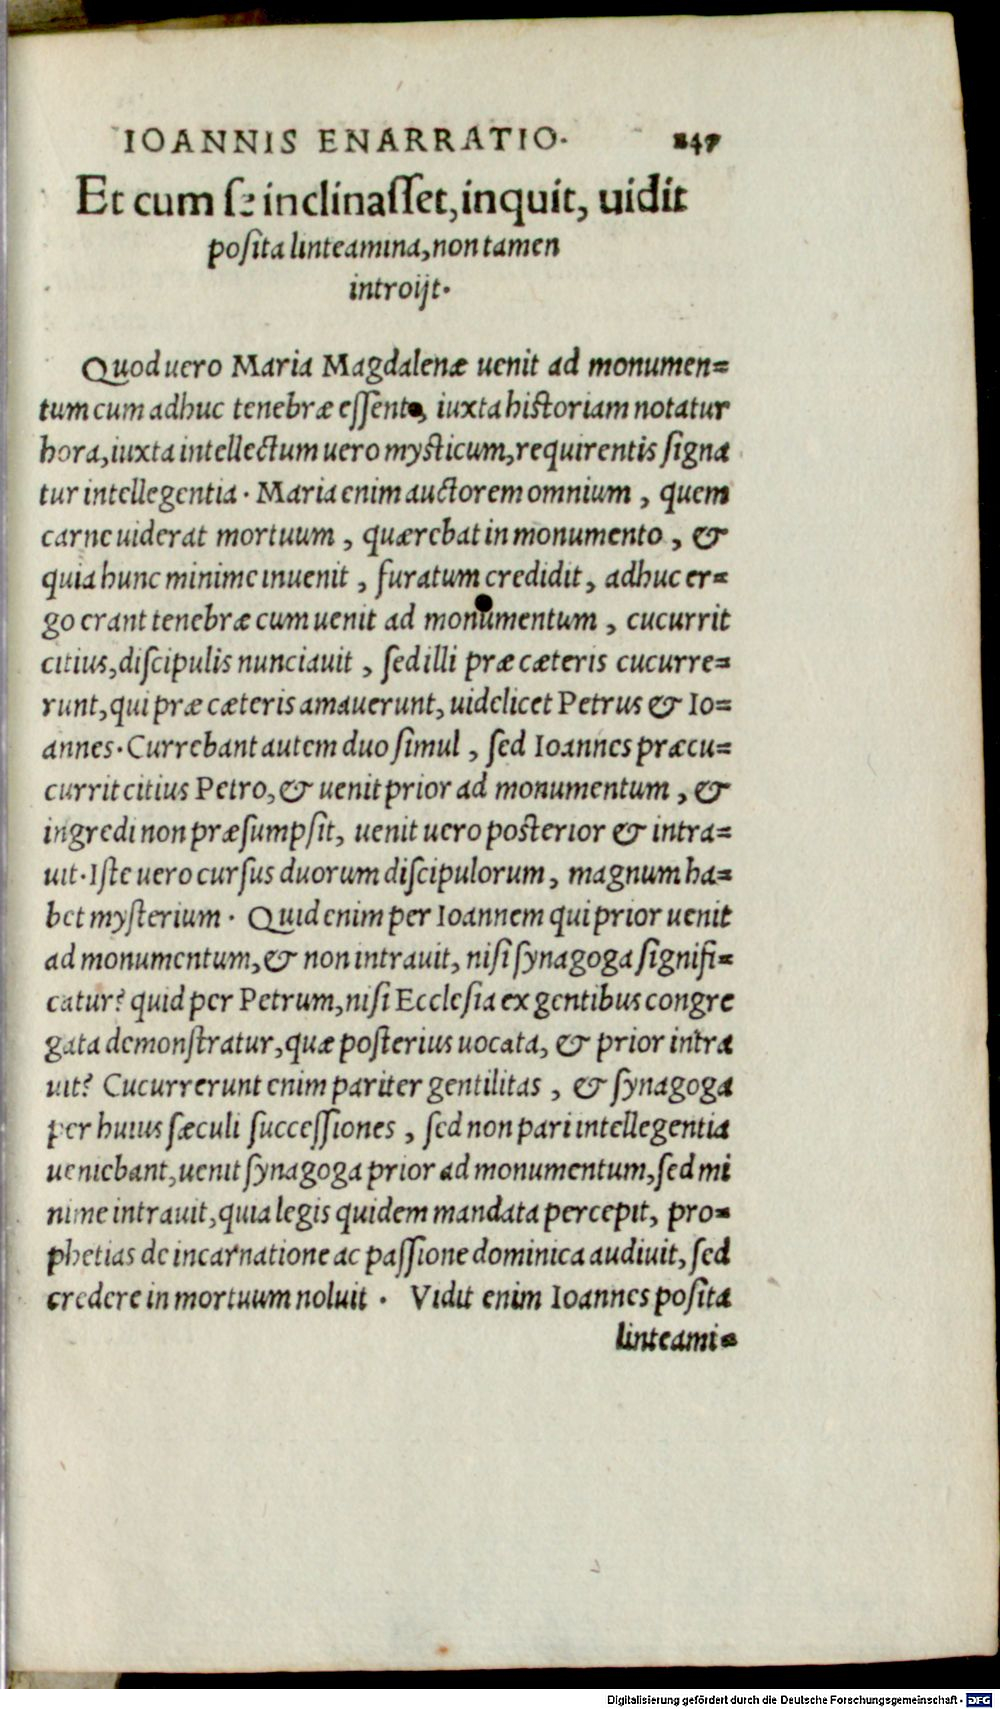 IOANNIS ENARRATIO. 247
Et cum se inclinasset, inquit, uidit
posita linteamina, non tamen
introijt.
Quod uero Maria Magdalenæ uenit ad monumen=
tum cum adhuc tenebræ essent, iuxta historiam notatur
hora, iuxta intellectum uero mysticum, requirentis signa
tur intellegentia. Maria enim auctorem omnium, quem
carne uiderat mortuum, quærebat in monumento, &
quia hunc minime inuenit, furatum credidit, adhuc er=
go erant tenebræ cum uenit ad monumentum, cucurrit
citius, discipulis nunciauit, sed illi præ cæteris cucurre=
runt, qui præ cæteris amauerunt, uidelicet Petrus & Io=
annes. Currebant autem duo simul, sed Ioannes præcu=
currit citius Petro, & uenit prior ad monumentum, &
ingredi non præsumpsit, uenit uero posterior & intra=
uit. Iste uero cursus duorum discipulorum, magnum ha=
bet mysterium. Quid enim per Ioannem qui prior uenit
ad monumentum, & non intrauit, nisi synagoga signifi=
catur? quid per Petrum, nisi Ecclesia ex gentibus congre
gata demonstratur, quæ posterius uocata, & prior intra
uit? Cucurrerunt enim pariter gentilitas, & synagoga
per huius sæculi successiones, sed non pari intellegentia
ueniebant, uenit synagoga prior ad monumentum, sed mi
nime intrauit, quia legis quidem mandata percepit, pro=
phetias de incarnatione ac passione dominica audiuit, sed
credere in mortuum noluit. Vidit enim Ioannes posita
linteami=
Digitalisierung gefördert durch die Deutsche Forschungsgemeinschaft - DFG